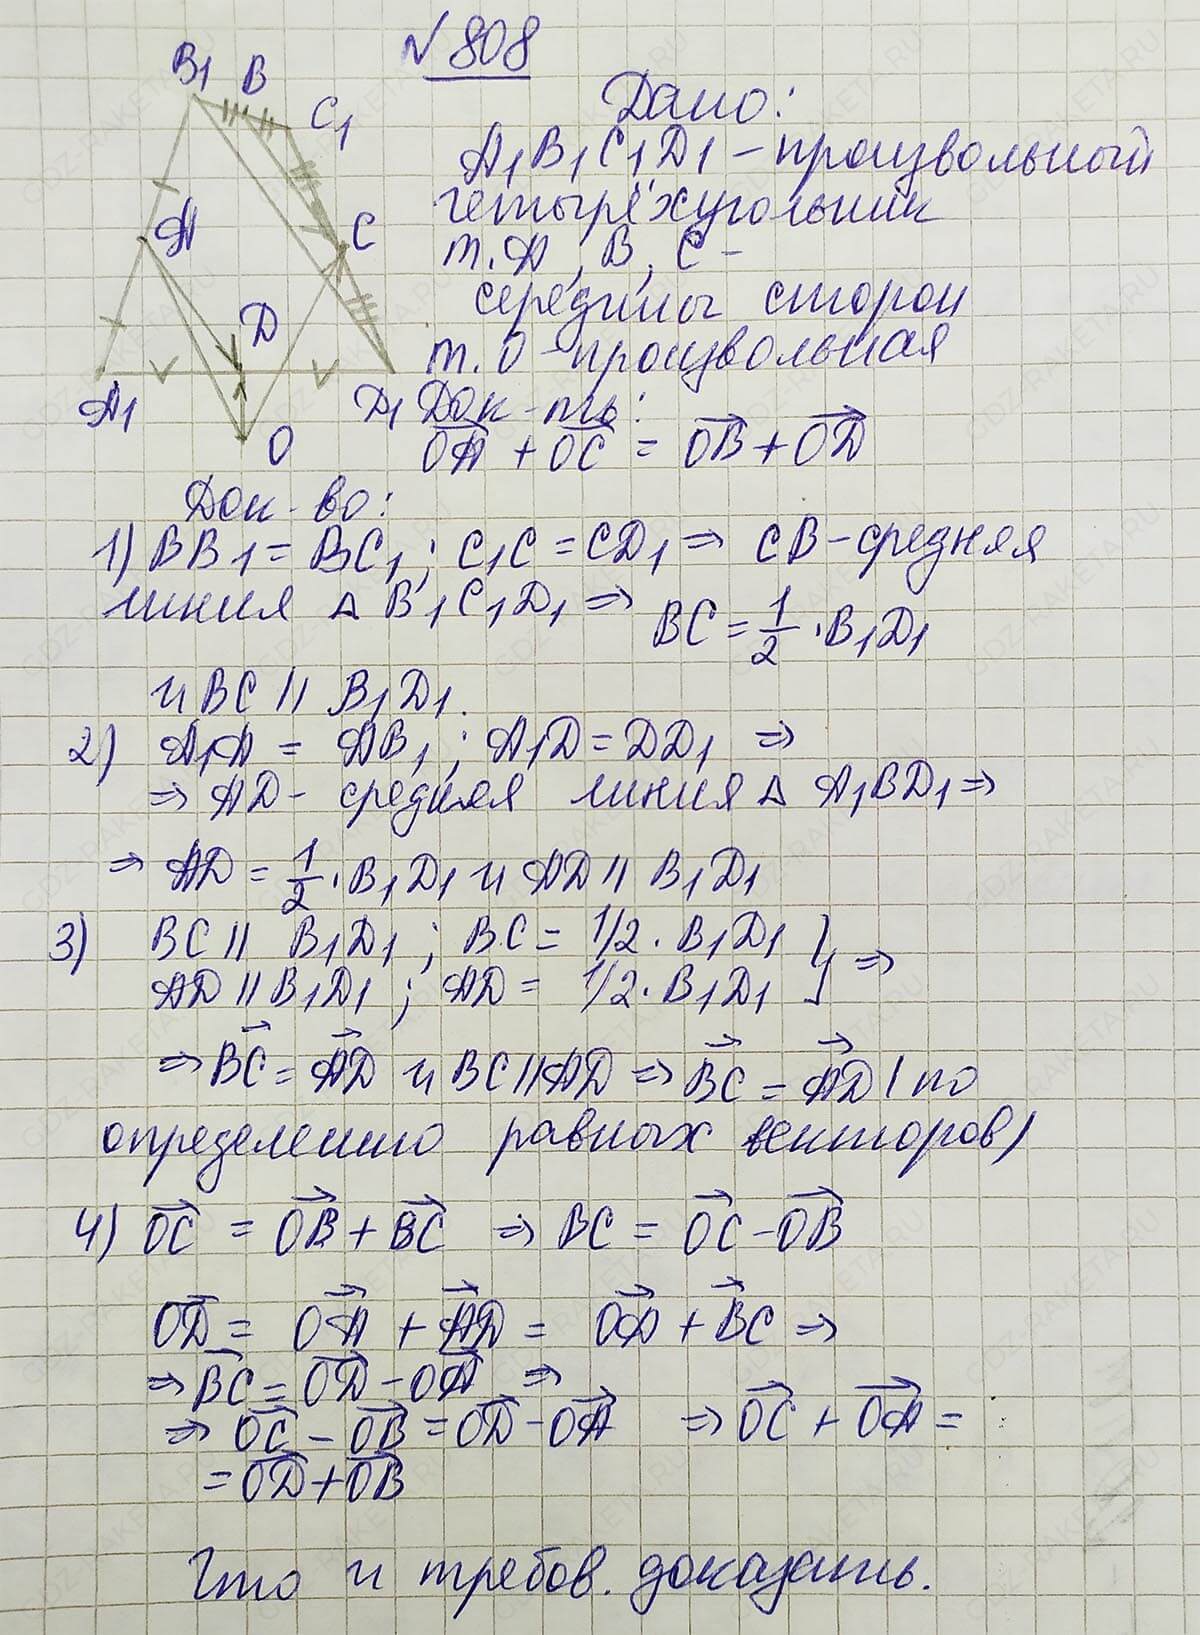 № 808
B₁ B
C₁
A
C
D
A₁
D₁
O
Дано:
A₁B₁C₁D₁ – произвольный
четырёхугольник
т. A, B, C –
середины сторон
т. O – произвольная
Док-ть:
OA + OC = OB + OD
Док-во:
1) BB₁ = BC₁; C₁C = CD₁ ⇒ CB – средняя
линия △ B₁C₁D₁ ⇒ BC = 1/2 · B₁D₁
и BC || B₁D₁.
2) A₁A = AB₁; A₁D = DD₁ ⇒
⇒ AD – средняя линия △ A₁BD₁ ⇒
⇒ AD = 1/2 · B₁D₁ и AD || B₁D₁
3) BC || B₁D₁; BC = 1/2 · B₁D₁ }
AD || B₁D₁; AD = 1/2 · B₁D₁ } ⇒
⇒ BC = AD и BC || AD ⇒ BC = AD (по
определению равных векторов)
4) OC = OB + BC ⇒ BC = OC – OB
OD = OA + AD = OA + BC ⇒
⇒ BC = OD – OA ⇒
⇒ OC – OB = OD – OA ⇒ OC + OA =
= OD + OB
Что и требов. доказать.
GDZ-RAKETA.RU